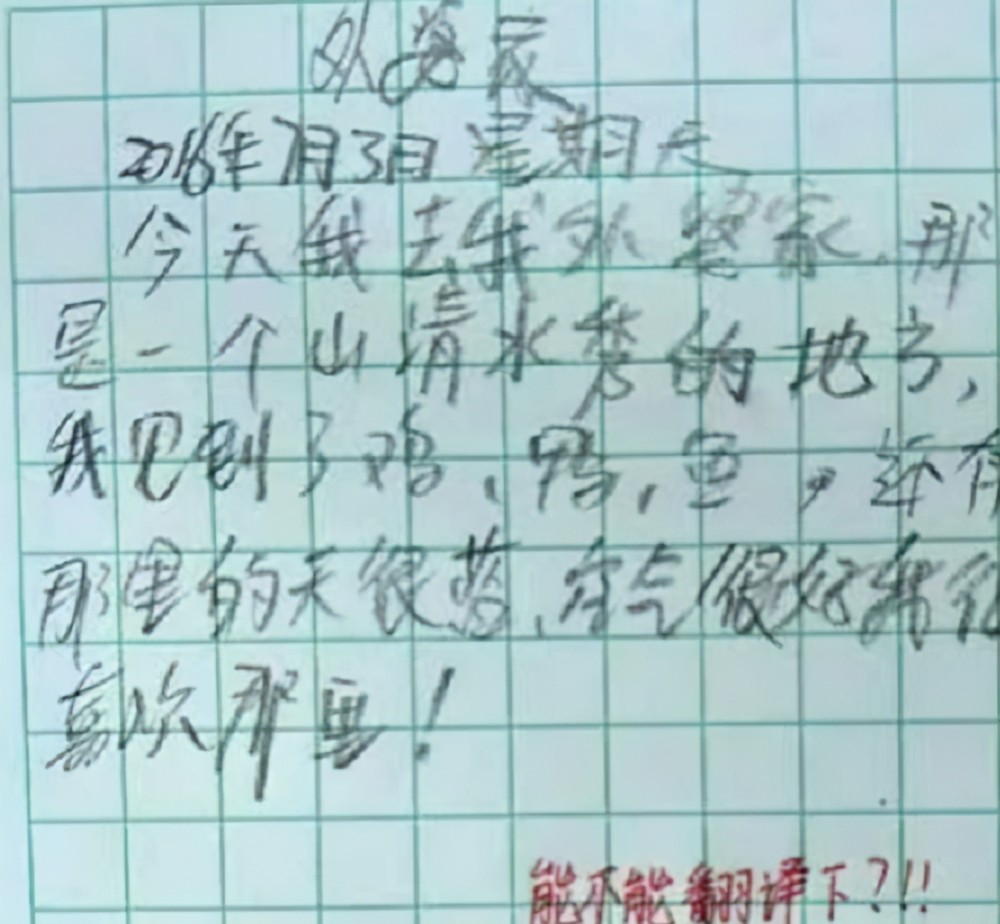 外婆家
2016年7月3日星期天
今天我去我外婆家,那
是一个山清水秀的地方,
我见到了鸡、鸭、鱼,还有
那里的天很蓝、空气很好我很
喜欢那里!
能不能翻译下?!!